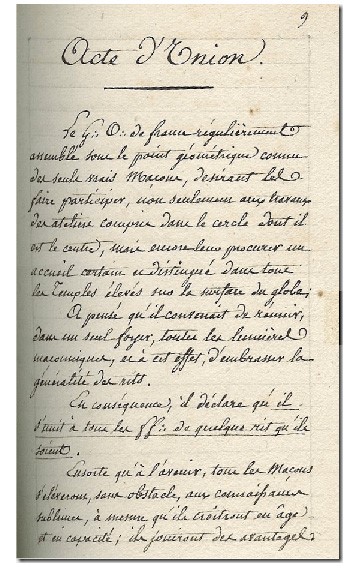 9
Acte d'Union.
Le G∴ O∴ de france régulièrement
assemblé sous le point géométrique connu
des seuls vrais Maçons, desirant les
faire participer, non seulement aux travaux
des ateliers compris dans le cercle dont il
est le centre, mais encore leur procurer un
accueil certain et distingué dans tous
les Temples élevés sur la surface du globe;
A pensé qu'il convenait de réunir,
dans un seul foyer, toutes les lumières
maçonniques, et à cet effet, d'embrasser la
généralité des rits.
En conséquence, il déclare qu'il
s'unit à tous les ff∴ de quelque rit qu'ils
soient.
Ensorte qu'à l'avenir, tous les Maçons
s'élèverons, sans obstacle, aux connaissances
sublimes, à mesure qu'ils croîtront en âge
et en capacité; ils jouiront des avantages